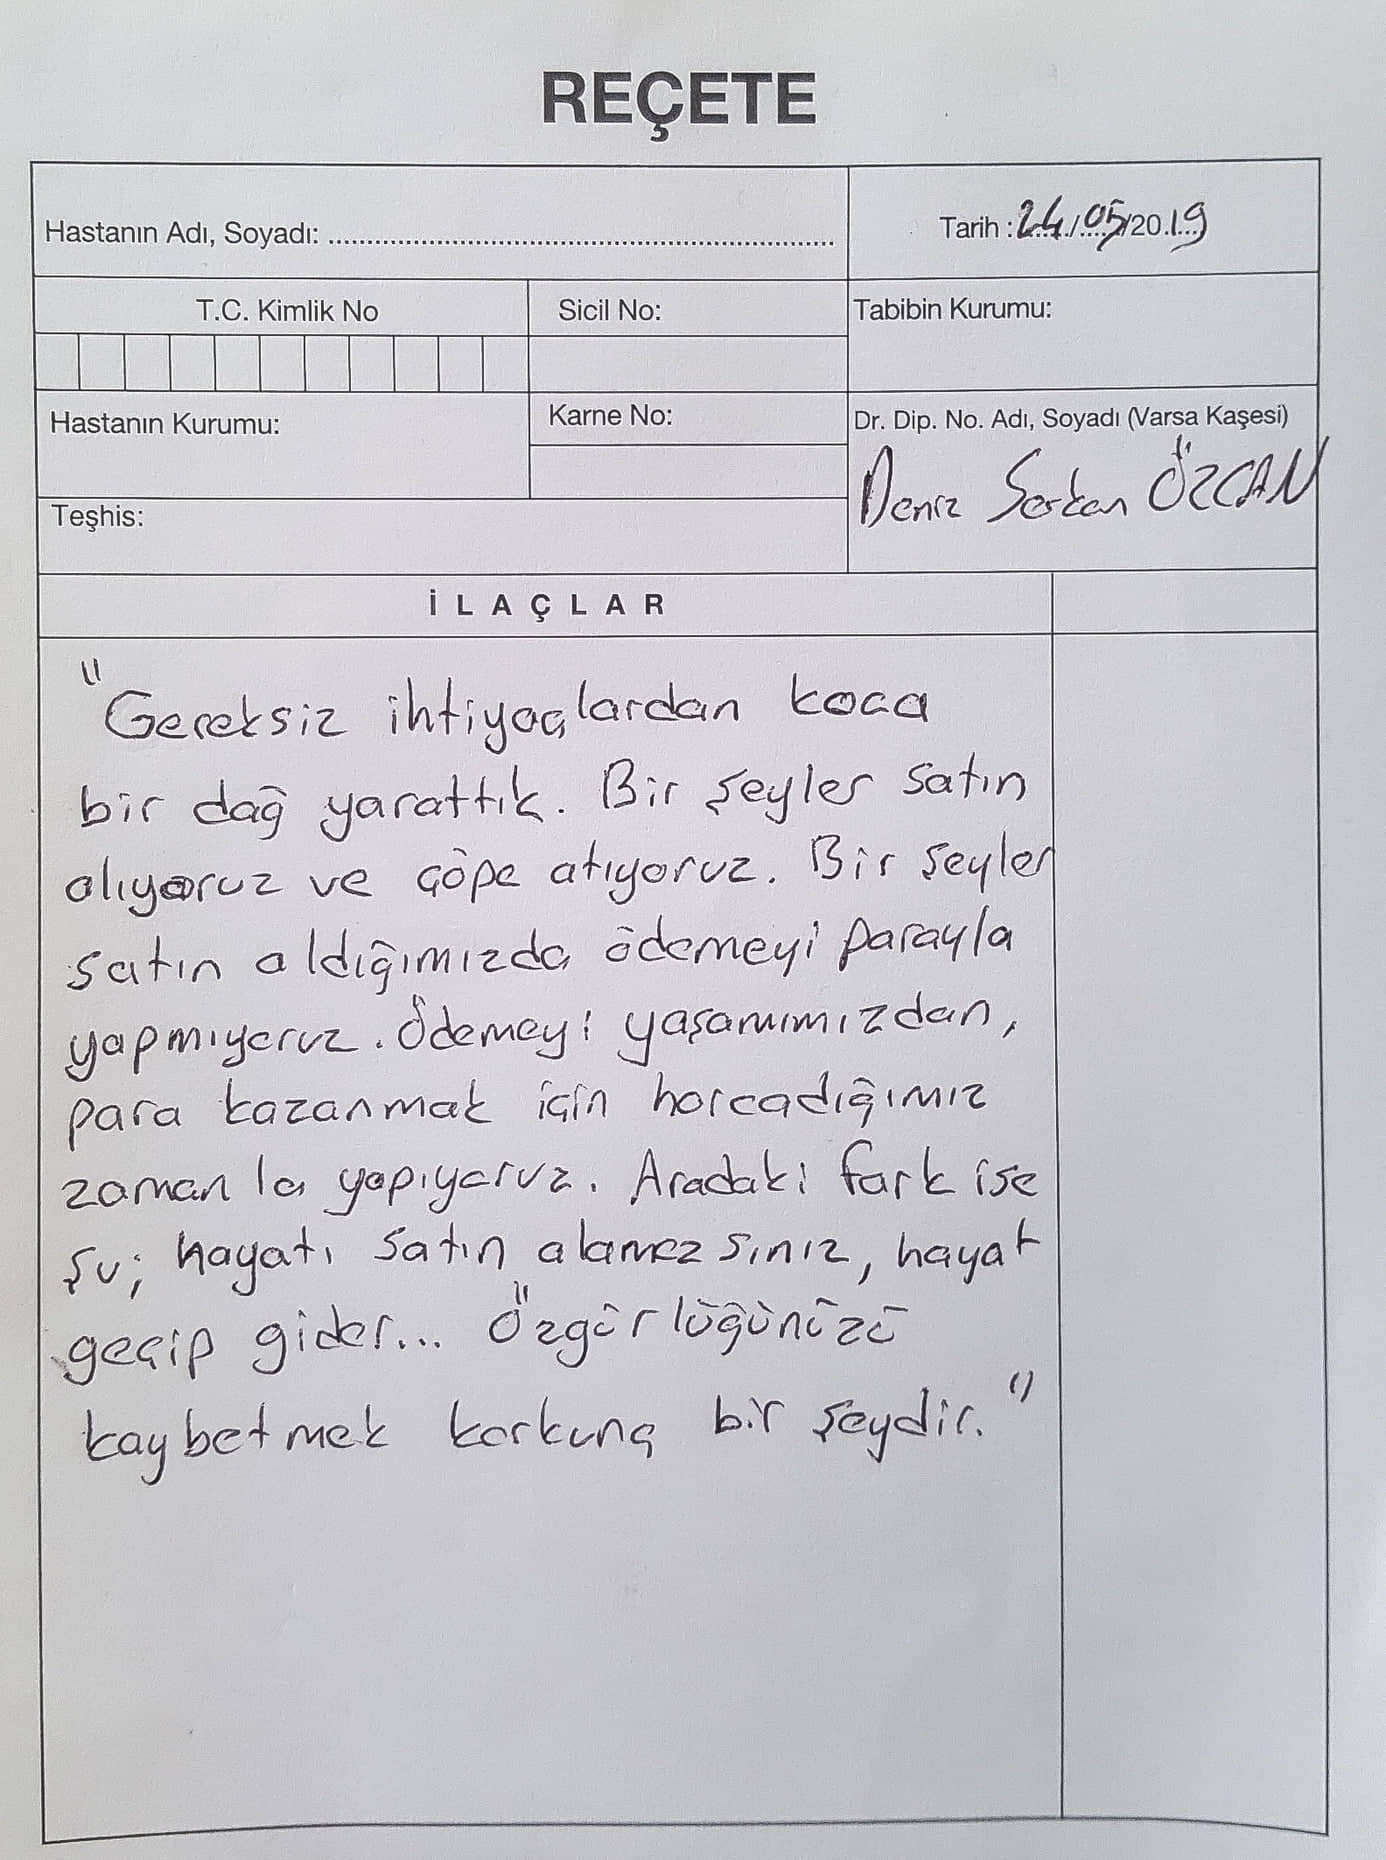 REÇETE
Hastanın Adı, Soyadı: ..........................................................................
Tarih : 24/05/2019
T.C. Kimlik No
Sicil No:
Tabibin Kurumu:
Hastanın Kurumu:
Karne No:
Dr. Dip. No. Adı, Soyadı (Varsa Kaşesi)
Deniz Serkan ÖZCAN
Teşhis:
İLAÇLAR
"Gereksiz ihtiyaçlardan koca
bir dağ yarattık. Bir şeyler satın
alıyoruz ve çöpe atıyoruz. Bir şeyler
satın aldığımızda ödemeyi parayla
yapmıyoruz. Ödemeyi yaşamımızdan,
para kazanmak için harcadığımız
zamanla yapıyoruz. Aradaki fark ise
şu; hayatı satın alamazsınız, hayat
geçip gider... Özgürlüğünüzü
kaybetmek korkunç bir şeydir."